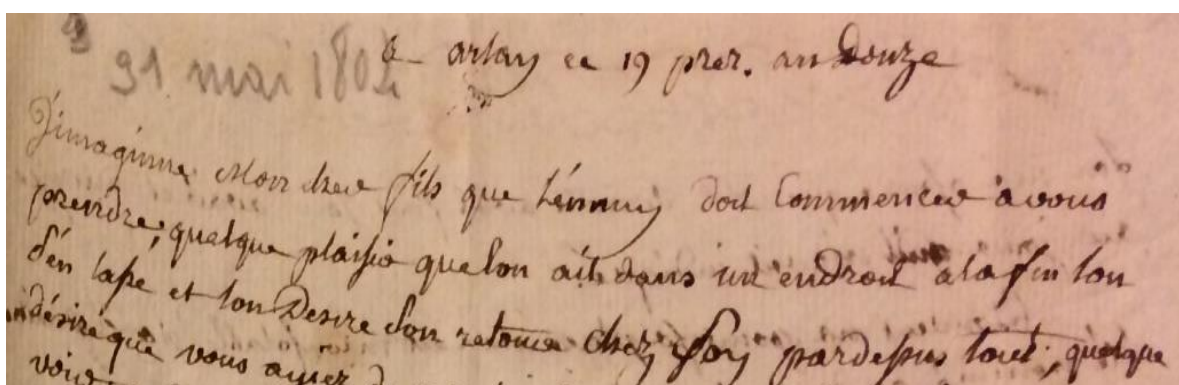 31 mai 1804
a arlay ce 19 prer. an Douze
J'imaginne Mon cher fils que l'énnuy doit Commencer a vous
prendre, quelque plaisir que lon ait dans un endroit a la fin lon
s'en lasse et lon Desire son retour chez soy pardessus tout, quelque
désire que vous ayiez
voir